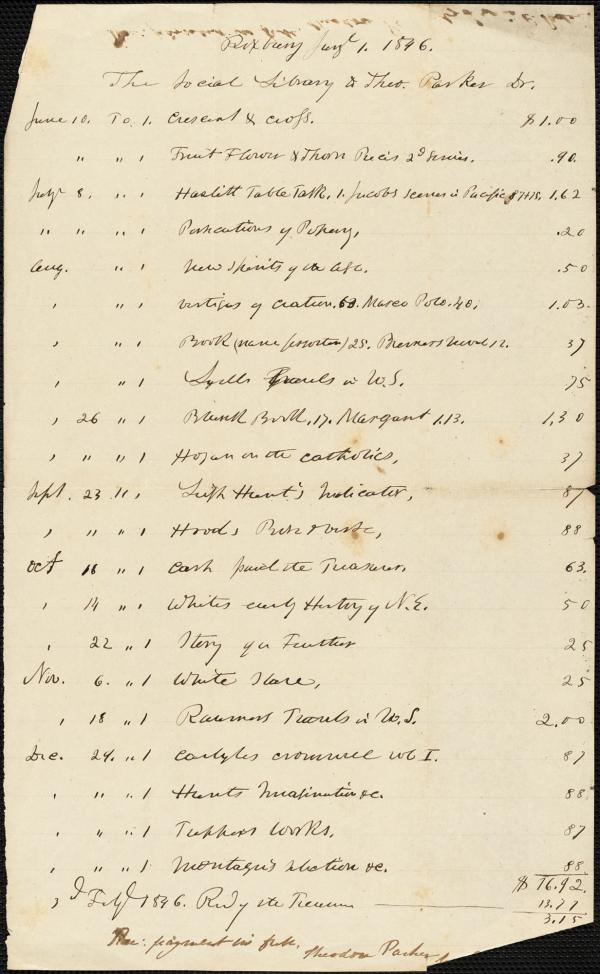 Roxbury Jany 1. 1846.
The Social Library to Theo. Parker Dr.
June 10. To 1. Crescent & Cross. $1.00
" " " 1 Fruit Flower & Thorn Pieces 2d Series. .90
July 8. " " 1 Hazlitt Table Talk. 1. Jacobs Scenes in Pacific 87+75. 1.62
" " " " 1 Persecutions of Popery, .20
Aug. " " 1 New Spirits of the Age. .50
" " " 1 Vestiges of Creation. 63. Marco Polo. 40. 1.03
" " " 1 Book (name forgotten) 25. Bremers Novel 12. 37
" " " 1 Lyells Travels in U.S. 75
" 26 " " 1 Blank Book, 17. Margaret 1.13. 1,30
" " " " 1 Hogan on the Catholics, 37
Sept. 23 " " 1 Leigh Hunt's Indicator, 87
" " " " 1 Hoods Prose & Verse, 88
Oct 16 " " 1 Cash paid the Treasurer. 63.
" 14 " " 1 Whites early History of N.E. 50
" 22 " " 1 Story of a Feather 25
Nov. 6. " " 1 White Slave, 25
" 18 " " 1 Raumers Travels in U.S. 2.00
Dec. 24. " " 1 Carlyles Cromwell vol I. 87
" " " " 1 Hunts Imagination &c. 88
" " " " 1 Tuppers Works, 87
" " " " 1 Montagu's Selection &c. 88
$16.92.
Feby 1846. Recd of the Treasurer 13.77
3.15
Rec: payment in full. Theodore Parker